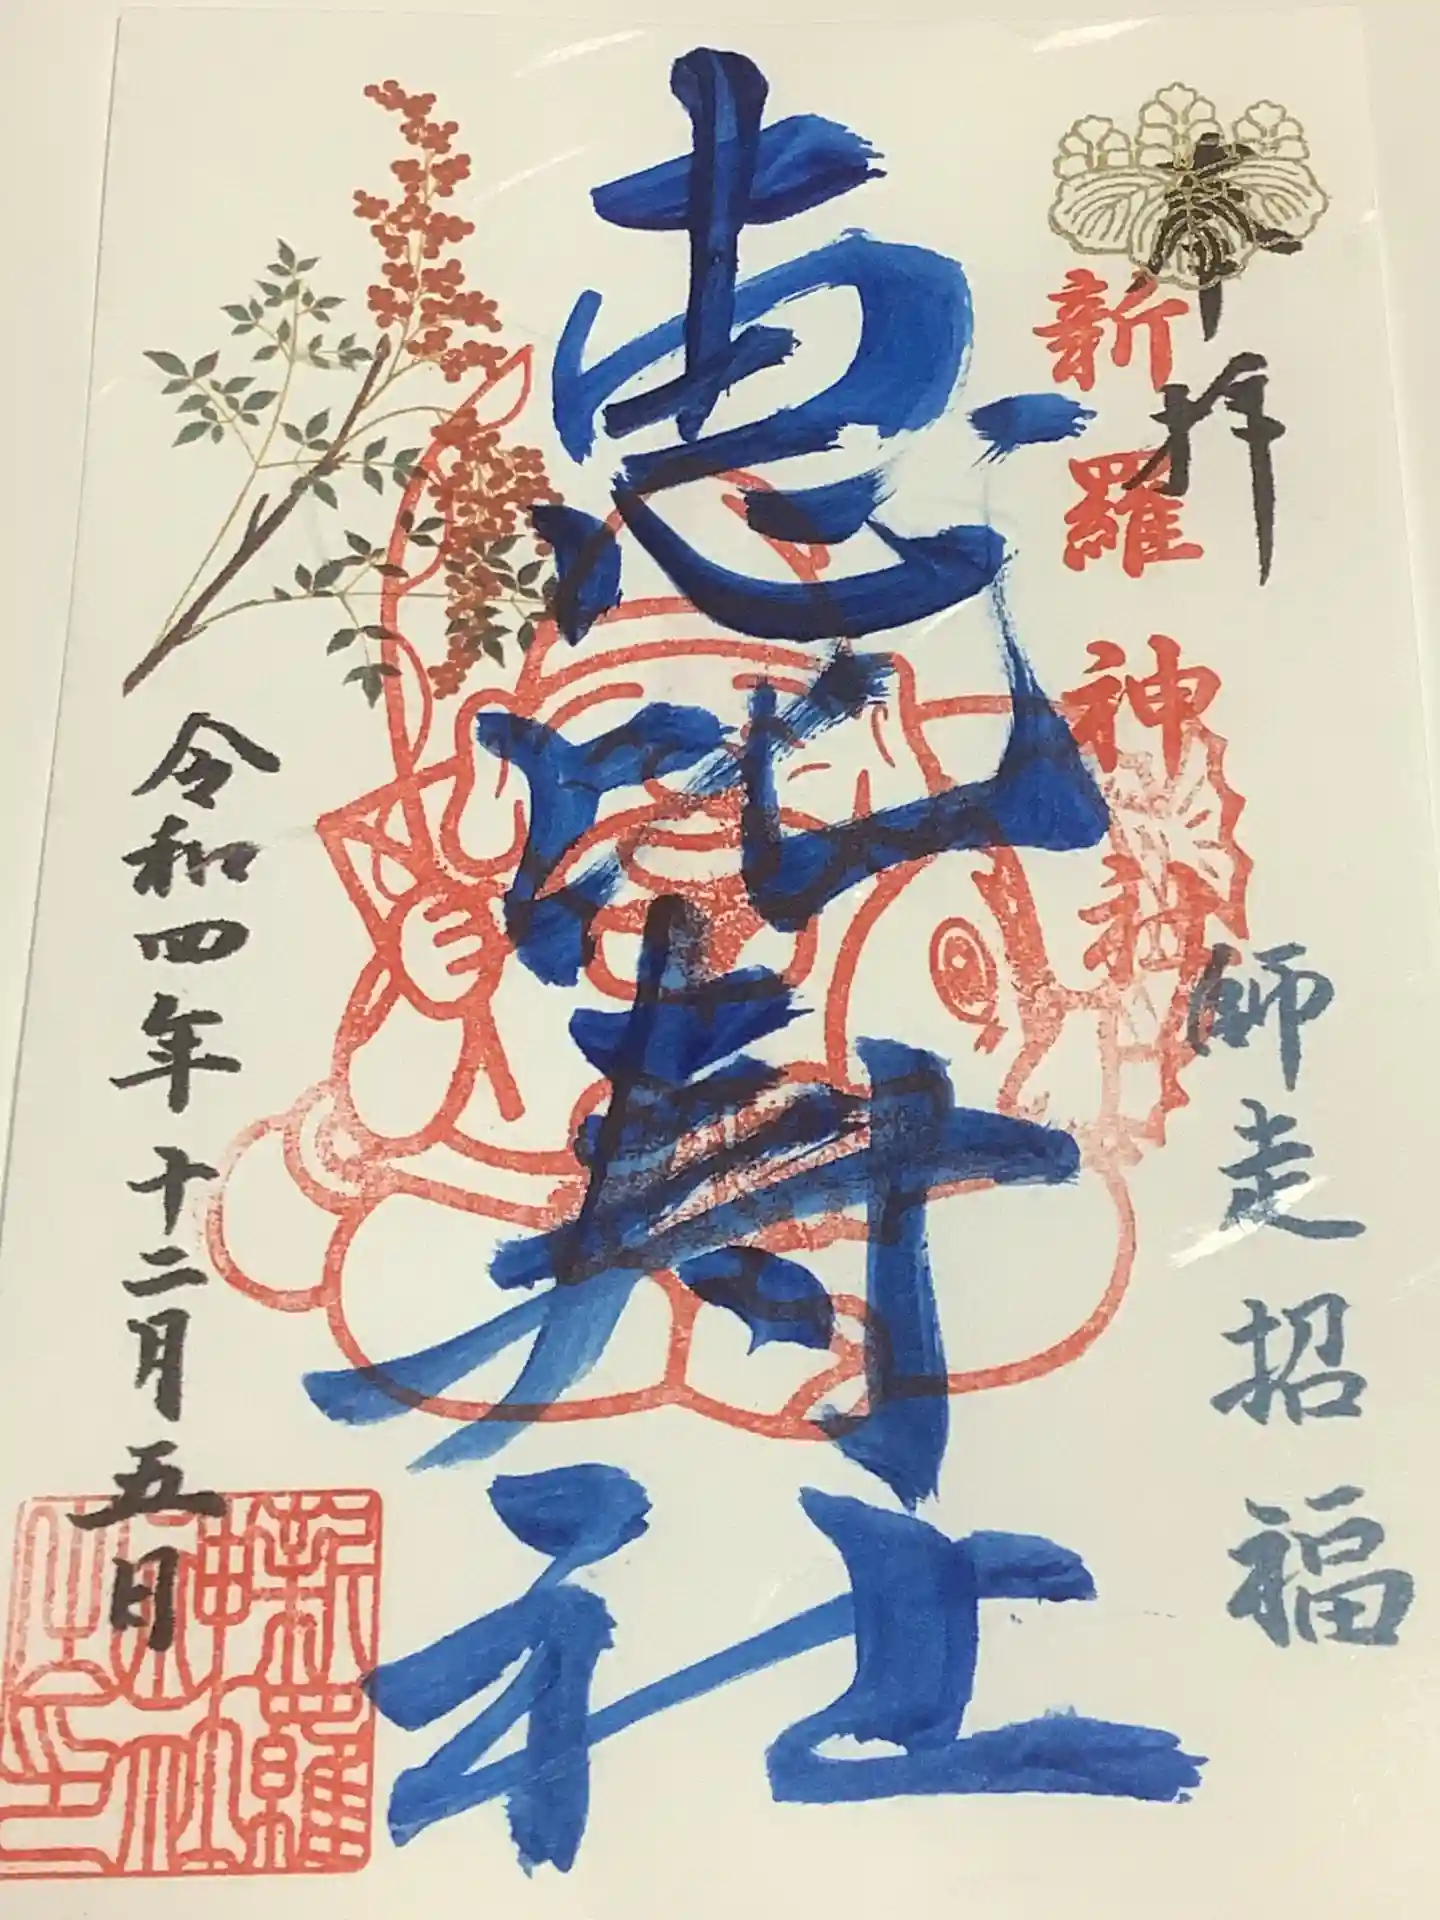 奉拝
新羅神社
師走招福
恵比寿社
令和四年十二月五日
新羅
神社
之印